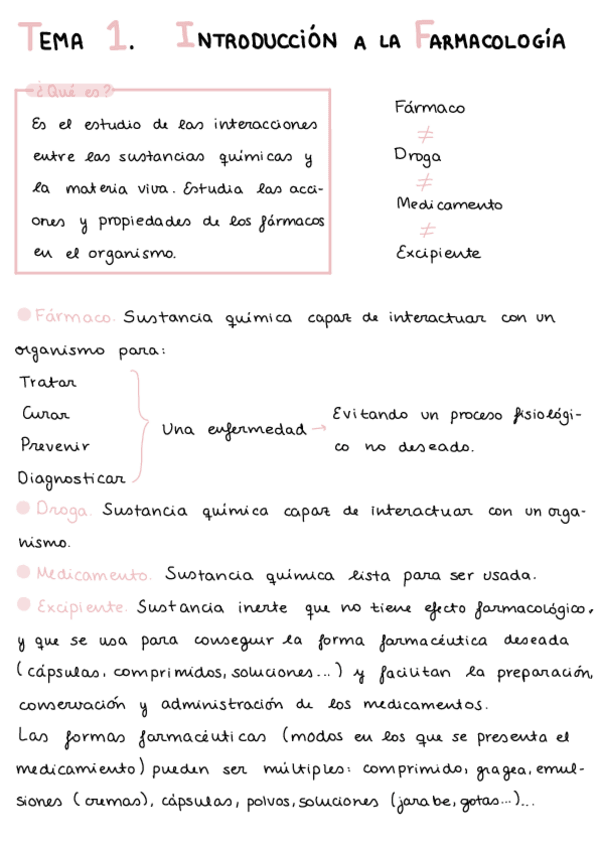 TEMA 1. INTRODUCCIÓN A LA FARMACOLOGÍA
¿Qué es?
Es el estudio de las interacciones
entre las sustancias químicas y
la materia viva. Estudia las acci-
ones y propiedades de los fármacos
en el organismo.
Fármaco
≠
Droga
≠
Medicamento
≠
Excipiente
Fármaco. Sustancia química capaz de interactuar con un
organismo para:
Tratar
Curar
Prevenir
Diagnosticar
Una enfermedad →
Evitando un proceso fisiológi-
co no deseado.
Droga. Sustancia química capaz de interactuar con un orga-
nismo.
Medicamento. Sustancia química lista para ser usada.
Excipiente. Sustancia inerte que no tiene efecto farmacológico,
y que se usa para conseguir la forma farmacéutica deseada
(cápsulas, comprimidos, soluciones...) y facilitan la preparación,
conservación y administración de los medicamentos.
Las formas farmacéuticas (modos en los que se presenta el
medicamiento) pueden ser múltiples: comprimido, gragea, emul-
siones (cremas), cápsulas, polvos, soluciones (jarabe, gotas...)...